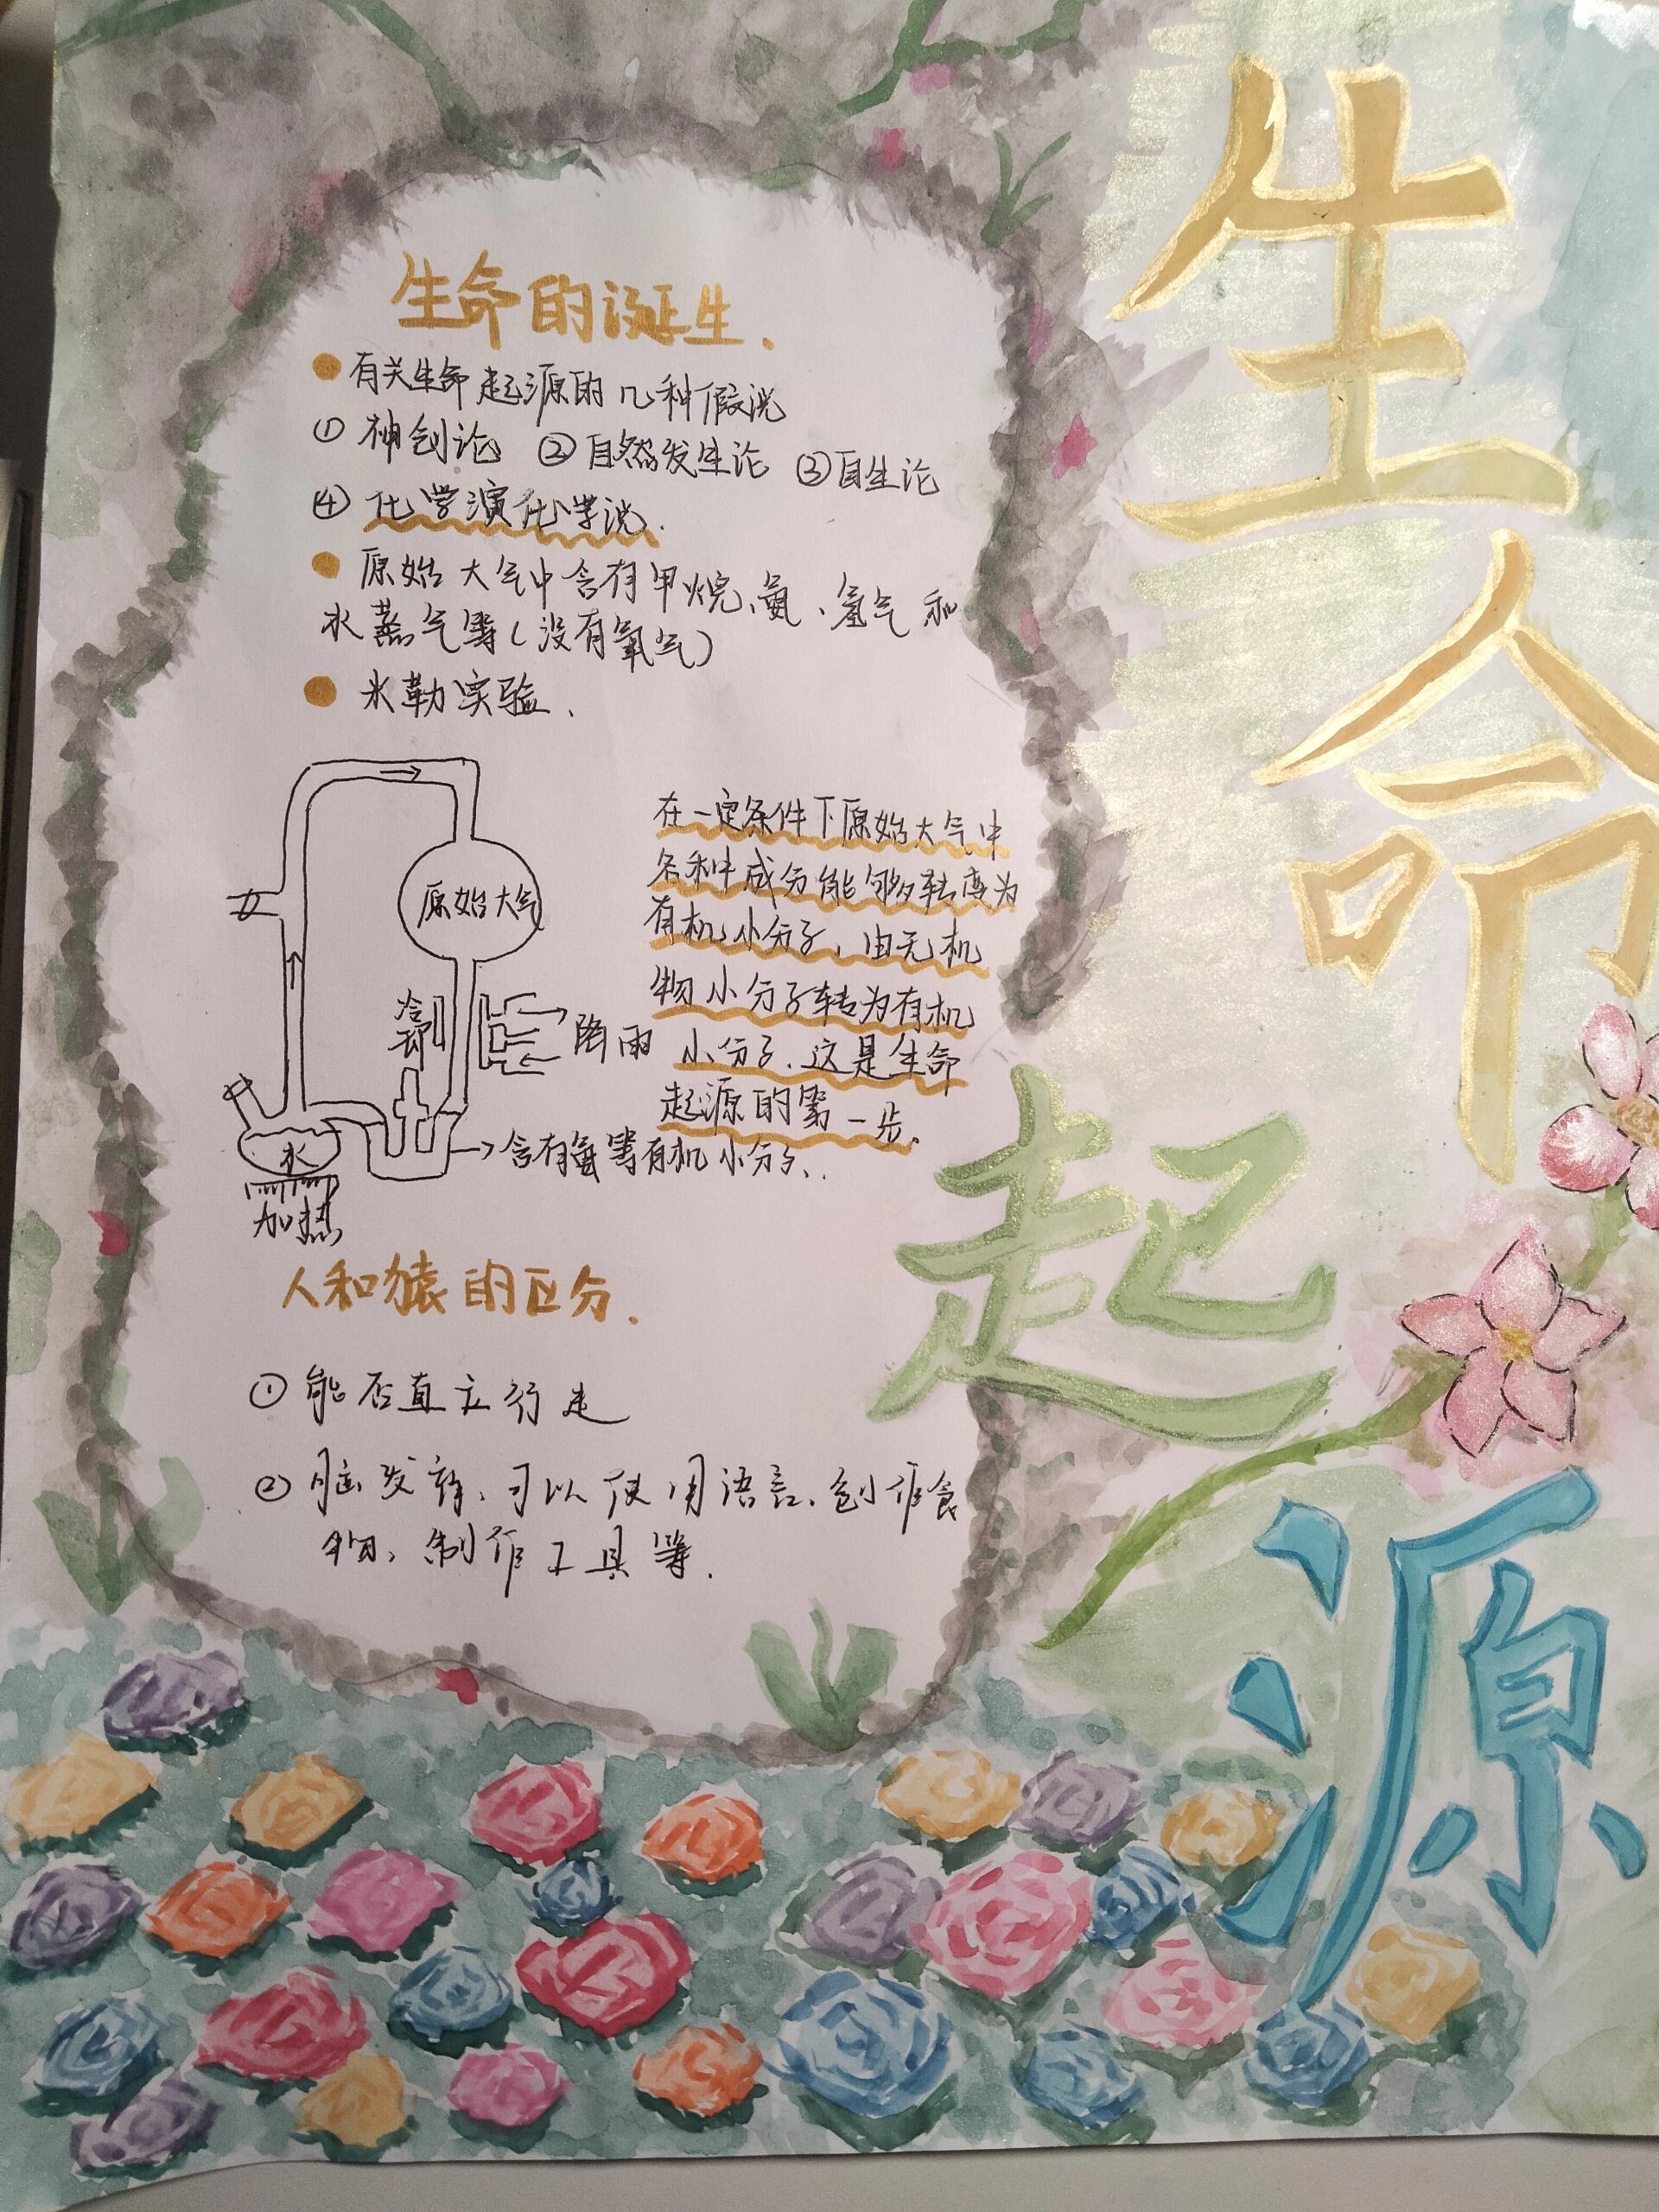 生命起源
生命的诞生.
有关生命起源的几种假说
① 神创论 ② 自然发生论 ③ 自生论
④ 化学演化学说.
原始大气中含有甲烷、氨、氢气和
水蒸气等(没有氧气)
米勒实验.
原始大气
冷却
降雨
水
加热
→含有氨等有机小分子..
在一定条件下原始大气中
各种成分能够转变为
有机小分子,由无机
物小分子转为有机
小分子.这是生命
起源的第一步.
人和猿的区分.
① 能否直立行走
② 脑发育、可以使用语言、创作食
物、制作工具等.